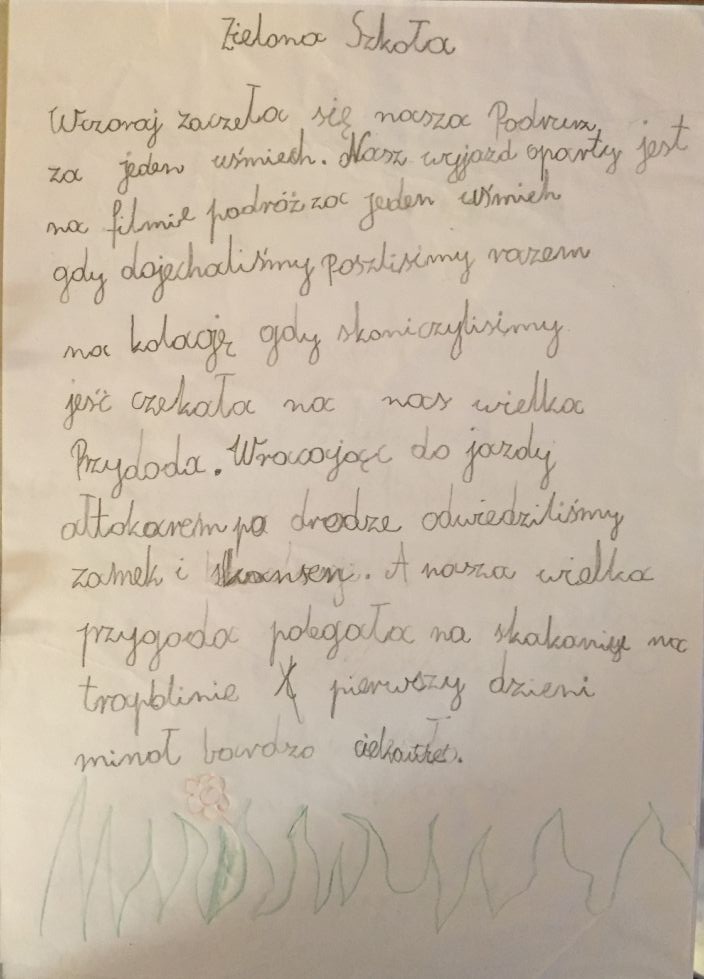 Zielona Szkoła
Wczoraj zaczeła się nasza Podruz
za jeden uśmiech. Nasz wyjazd oparty jest
na filmie podróż za jeden uśmieh
gdy dojechaliśmy poszlisimy razem
na kolację gdy skoniczylisimy
jeść czekała na nas wielka
Przydoda. Wracając do jazdy
ałtokarem po drodze odwiedziliśmy
zamek i skansen. A nasza wielka
przygoda polegała na skakaniu na
tranplinie X pierwszy dzieni
minoł bardzo